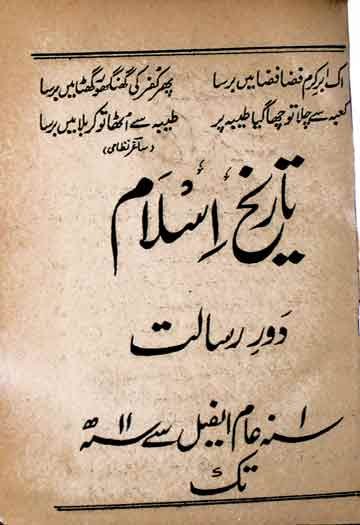 اک ابرِ کرم فضا فضا میں برسا پھر کفر کی گھنگھور گھٹا میں برسا
کعبہ سے چلا تو چھا گیا طیبہ پر طیبہ سے اٹھا تو کربلا میں برسا
(ساغر نظامی)
تاریخِ اِسْلَام
دَورِ رسالت
۱ سنہ عام الفیل سے ۱۱ سنہ ھ
تک